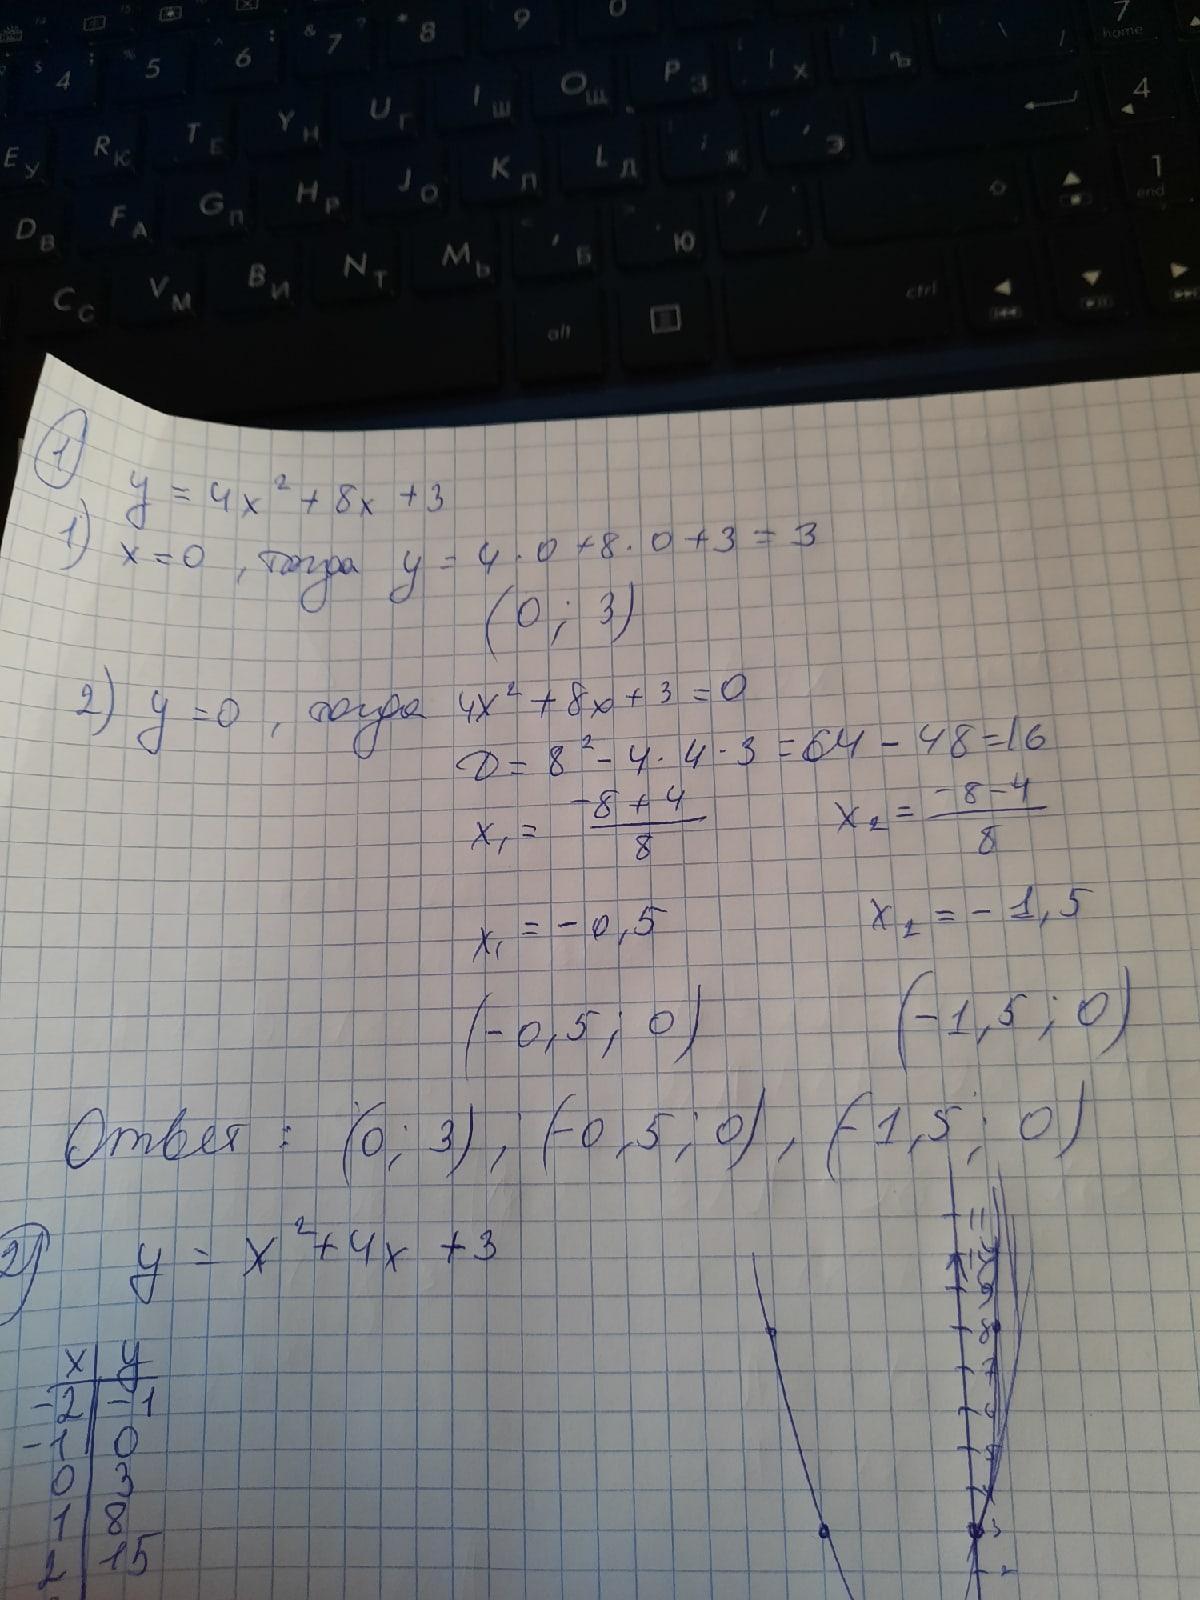 4 5 6 & 7 * 8 9 0 7 home
E У R К T Е Y Н U Г I Ш O Щ P З [ Х ] Ъ 4
D В F А G П H Р J О K Л L Д ; Ж ' Э 1 end
C С V М B И N Т M Ь , Б . Ю /
alt ctrl
1
y = 4x² + 8x + 3
1) x = 0 , тогда y = 4 · 0 + 8 · 0 + 3 = 3
(0 ; 3)
2) y = 0 , тогда 4x² + 8x + 3 = 0
D = 8² - 4 · 4 · 3 = 64 - 48 = 16
x₁ = (-8 + 4)/8 x₂ = (-8 - 4)/8
x₁ = -0,5 x₂ = -1,5
(-0,5 ; 0) (-1,5 ; 0)
Ответ : (0 ; 3) , (-0,5 ; 0) , (-1,5 ; 0)
2) y = x² + 4x + 3
x y
-2 -1
-1 0
0 3
1 8
2 15
11
9
8
7
6
3
2